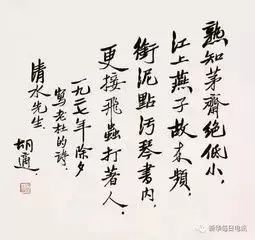 熟知茅齋絕低小,
江上燕子故来頻,
銜泥點污琴書内,
更接飛蟲打著人.
一九二七年除夕
寫老杜的詩.
清水先生.
胡適
新华每日电讯